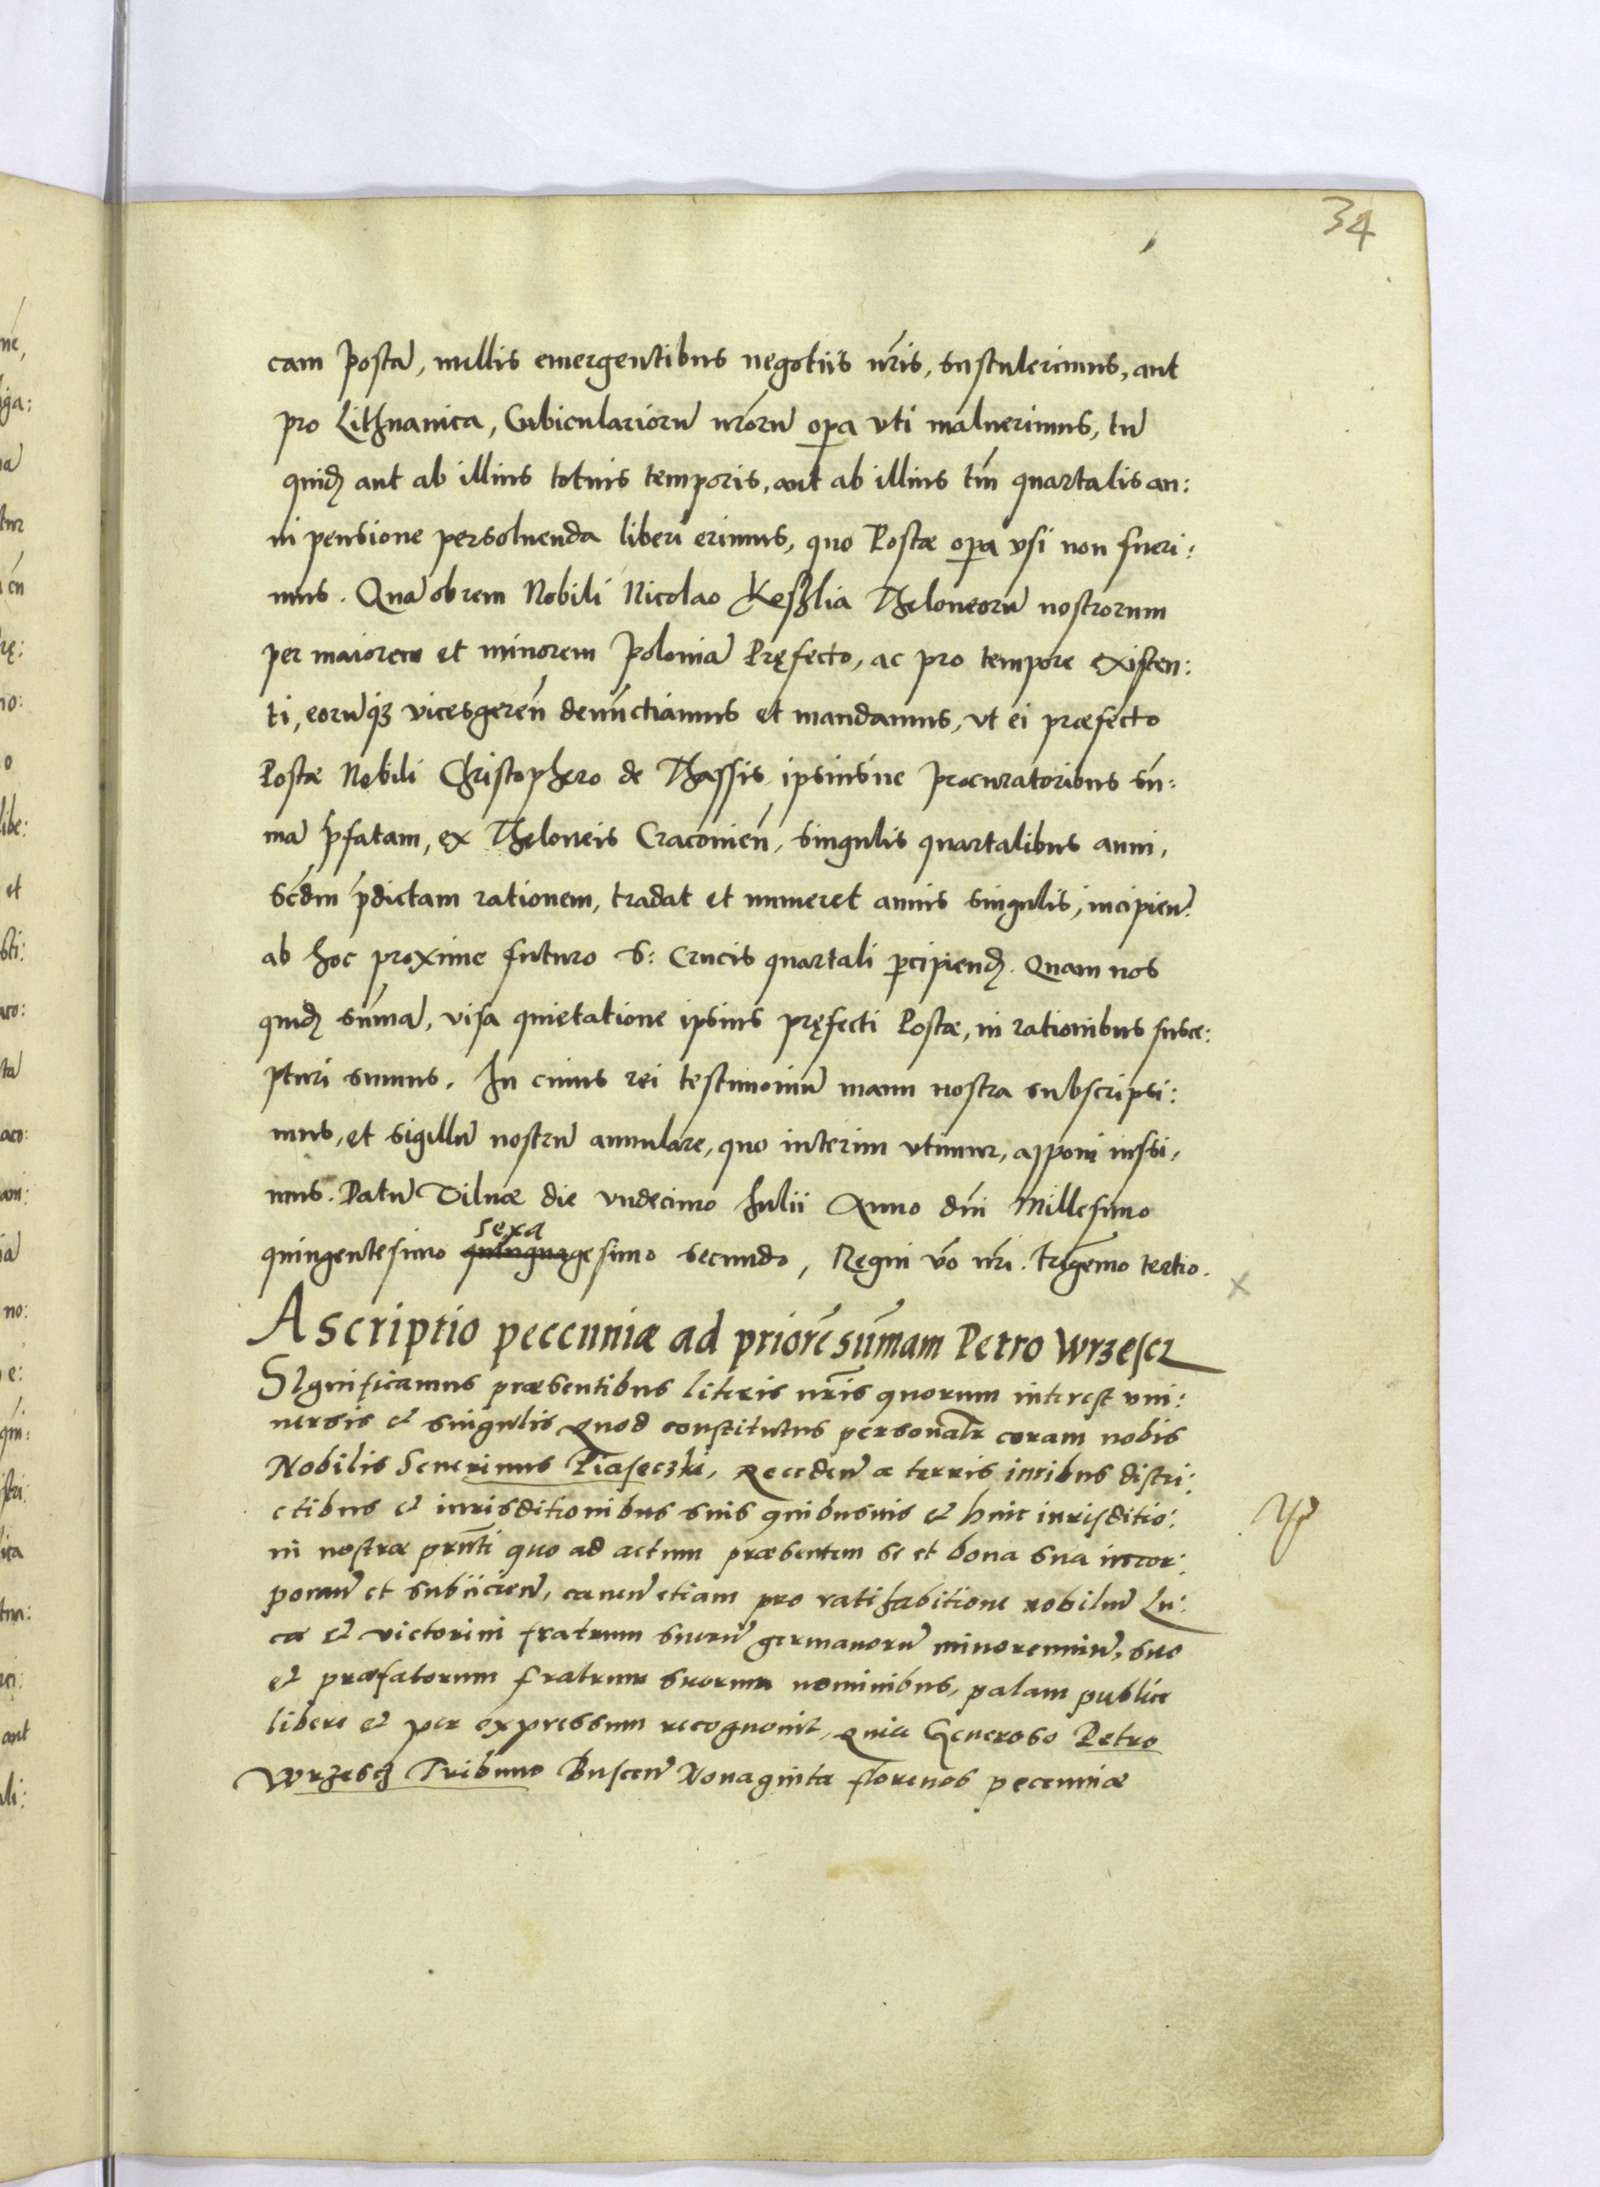 34
cam Postã, nullis emergentibus negotiis nr̃is, sustulerimus, aut
pro Lithuanica, Cubiculariorũ nr̃orũ opa vti maluerimus, tũ
quidẽ aut ab illius totius temporis, aut ab illius tm̃ quartalis an:
ni pensione persoluenda liberi erimus, quo Postæ opa vsi non fueri:
mus. Quã obrem Nobili Nicolao Theloneorũ nostrorum
per maiorem et minorem Poloniã Pręfecto, ac pro tempore existen:
ti, eorũq3 vicesgereñ denũctiamus et mandamus, vt ei præfecto
Postæ Nobili Christophero de Thassis, ipsiusue Procuratoribus sũ:
mã p̃fatam, ex Theloneis Cracovieñ, singulis quartalibus anni,
scd̃m p̃dictam rationem, tradat et numeret annis singulis, incipieñ
ab hoc proxime futuro S: Crucis quartali pcipiend. Quam nos
quidẽ sũmã, visa quietatione ipsius pręfecti Postæ, in rationibus susce:
pturi sumus. In cuius rei testimoniũ manu nostra subscripsi:
mus, et sigillũ nostrũ annulare, quo interim vtimur, apponi iussi,
mus. Datũ Vilnæ die vndecimo Julii Anno dñi Millesimo
sexa
quingentesimo quinquagesimo secundo, Regni v̊o nr̃i. trigẽmo tertio.
Ascriptio peccuniæ ad priorẽ sũmam Petro Wrzescz
SIgnificamus præsentibus literis nr̃is quorum interest vni:
uersis et singulis Quod constitutus personalr̃ coram nobis
Nobilis Seuerinus Piaseczki, Recedeñ a terris iuribus distri:
ctibus et iurisditionibus suis quibusuis et huic iurisditio:
ni nostræ pr̃nti quo ad actum præsentem se et bona sua incor:
porañ et subiicieñ, caueñ etiam pro ratihabitione nobiliũ Lu:
cæ et victorini fratrum suorũ germanorũ minorenniũ, suo
et præfatorum fratrum suorum nominibus, palam publice
libere et per expressum recognouit, Quia Generoso Petro
Wrzescz Tribuno Busceñ Nonaginta florenos peccuniæ